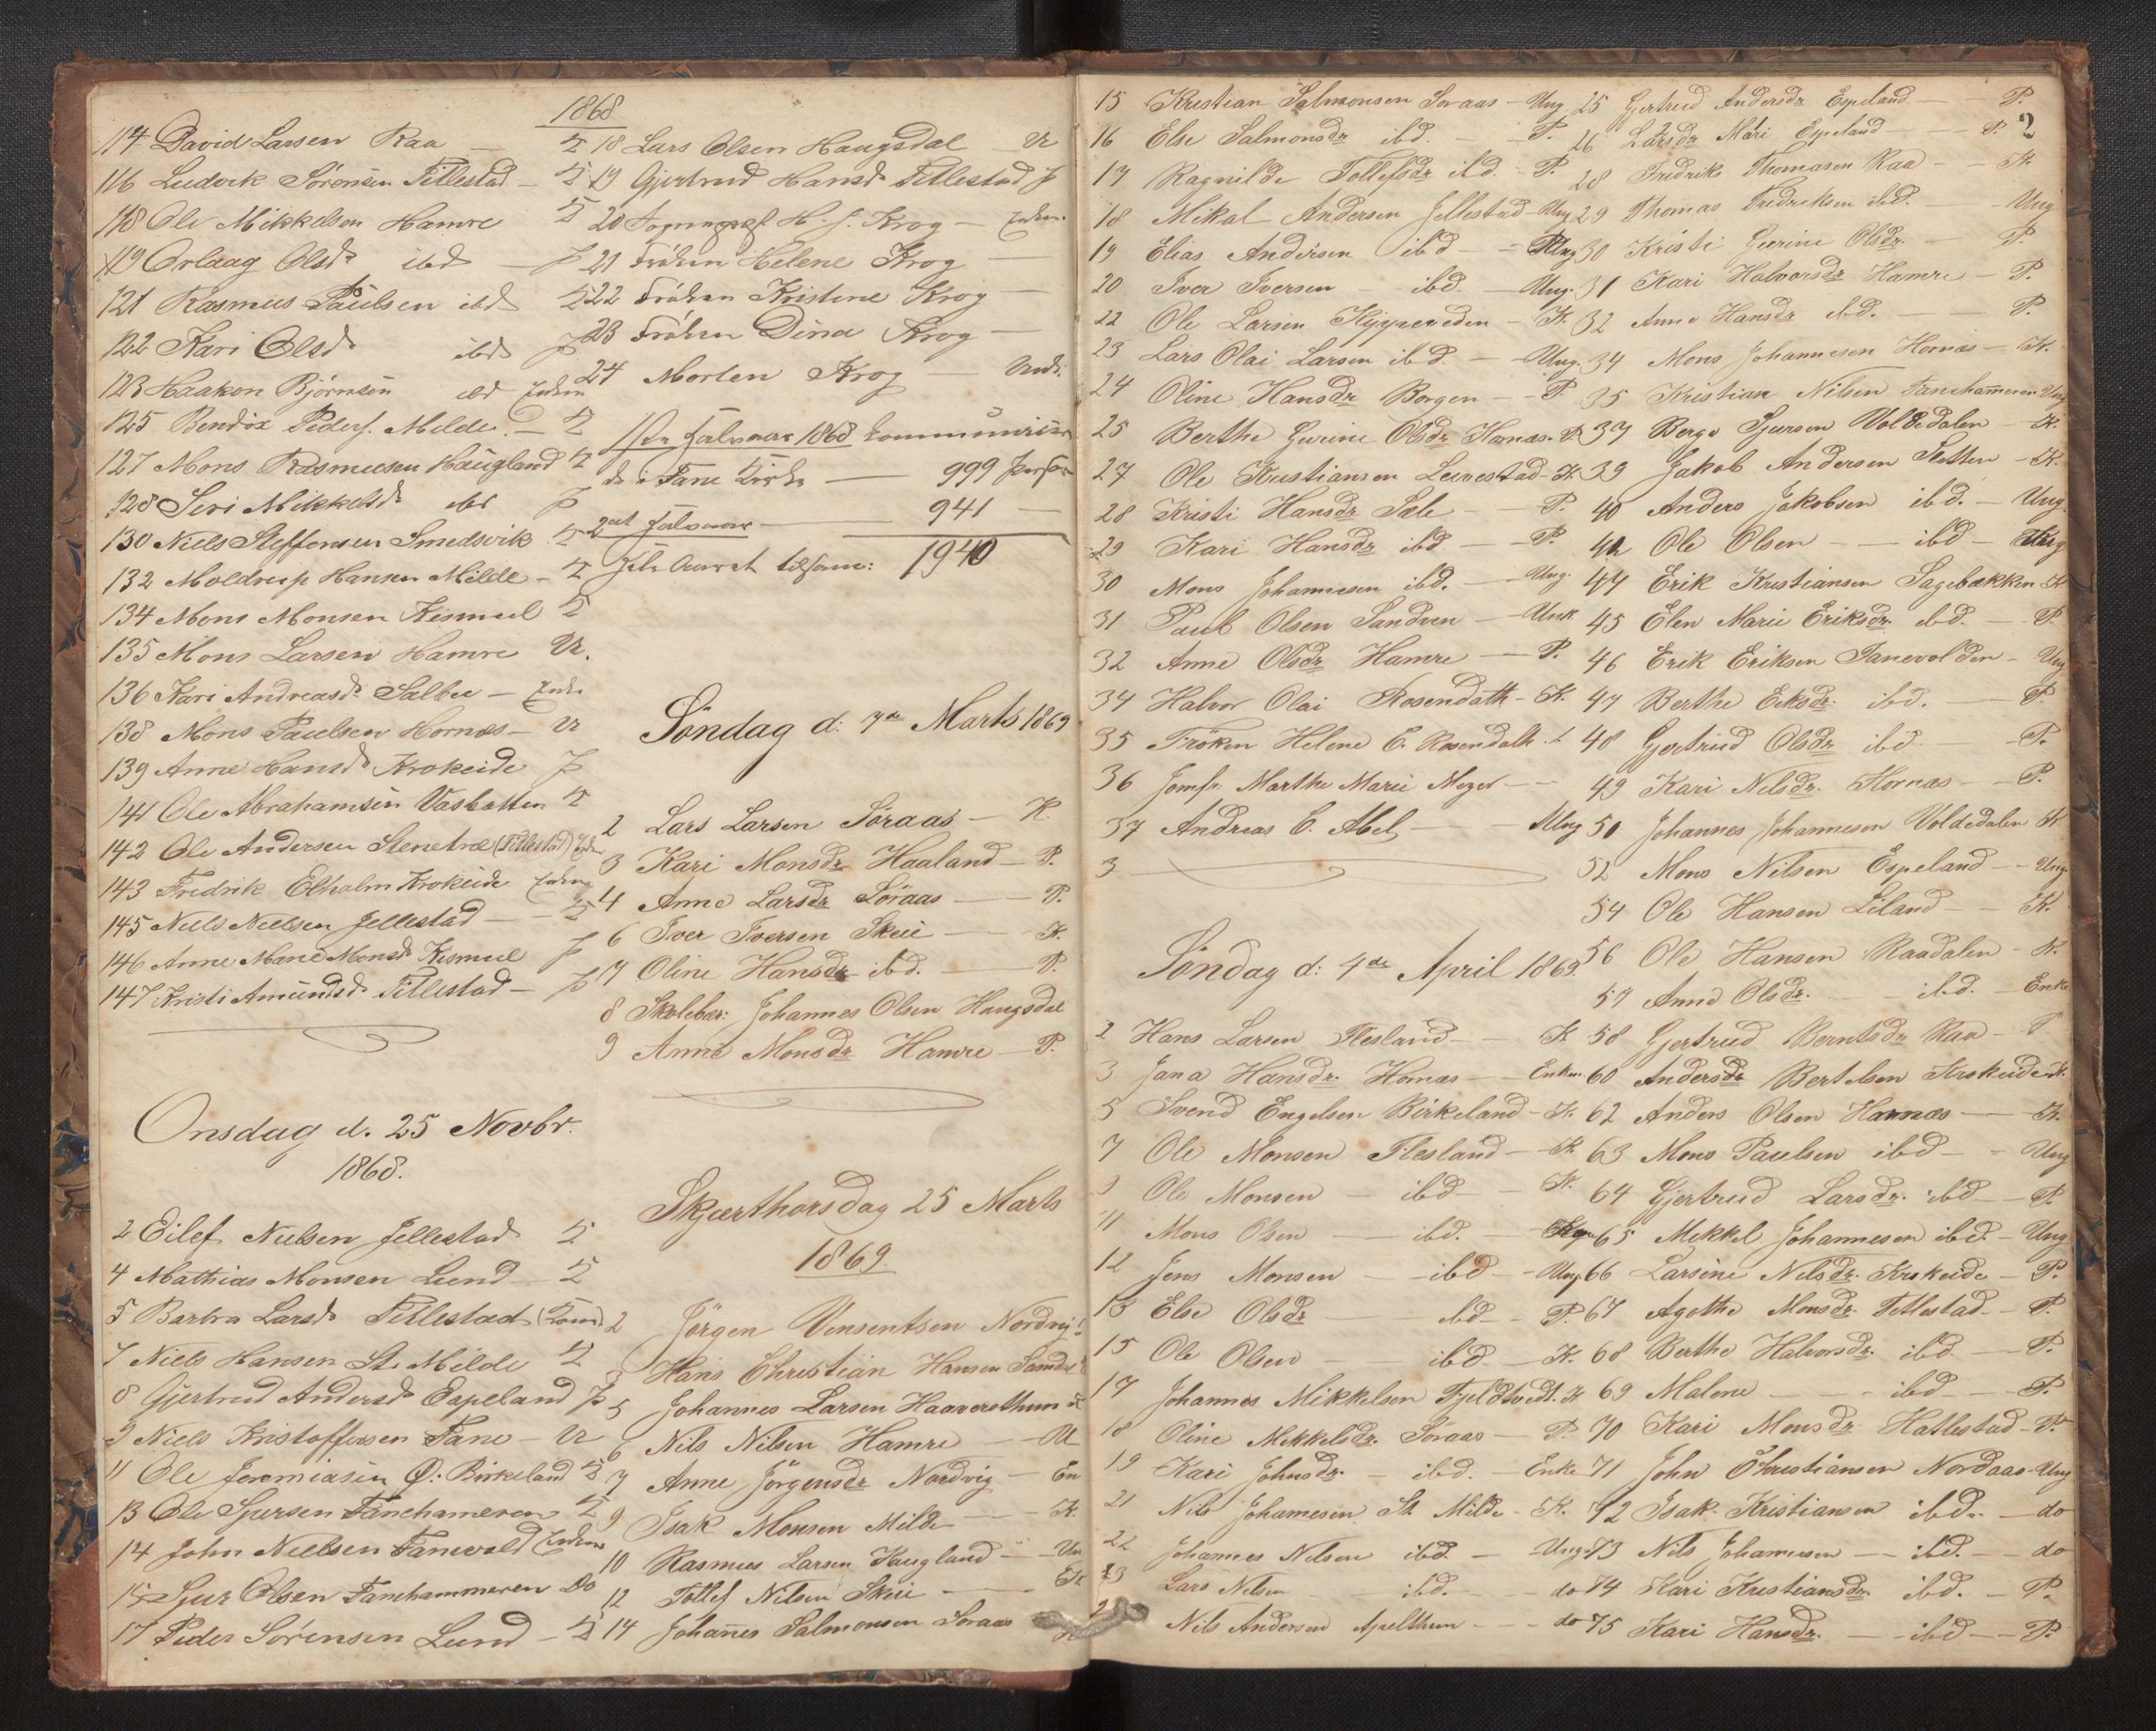 1868
114 David Larsen Raa — K
116 Ludvik Sörensen Titlestad — K
118 Ole Mikkelsen Hamre K
119 Orlaag Olsd. ibd — P
121 Rasmus Paulsen ibd K
122 Kari Olsd. ibd P
123 Haakon Björnsen ibd
125 Bendix Peders. Milde. — K
127 Mons Rasmusen Haugland K
128 Siri Mikkelsd. ibd P
130 Niels Steffensen Smedsvik K
132 Moldrup Hansen Milde — K
134 Mons Monsen Kismul K
135 Mons Larsen Hamre U.
136 Kari Andreasd. Salbu —
138 Mons Paulsen Hornæs — U
139 Anne Hansd. Krokeide P
141 Ole Abrahamsen Vasbotten K
142 Ole Andersen Stenetræ (Titlestad)
143 Fredrik Elholm Krokeide
145 Niels Nielsen Jellestad — K
146 Anne Marie Monsd. Kismul P
147 Kristi Amundsd. Titlestad — P
Onsdag d. 25 Novbr.
1868.
2 Eilef Nielsen Jellestad K
4 Mathias Monsen Lund — K
5 Barbra Larsd. Titlestad
7 Niels Hansen St. Milde K
8 Gjertrud Andersd. Espeland P
9 Niels Kristoffersen Fane — U
11 Ole Jeremiasen Ö. Birkeland K
13 Ole Sjursen Fanehameren K
14 John Nielsen Fanevold
15 Sjur Olsen Fanehammeren Do
17 Peder Sörensen Lund — K
18 Lars Olsen Haugsdal — U
19 Gjertrud Hansd. Titlestad P
20 H. J. Krog —
21 Fröken Helene Krog —
22 Fröken Kristine Krog —
23 Fröken Dina Krog —
24 Morten Krog —
1ste Halvaar 1868
de i Fane Kirke — 999
2det Halvaar — 941 —
Hele Aaret tilsam: 1940
Söndag d: 7de Marts 1869
2 Lars Larsen Söraas — K.
3 Kari Monsdr Haaland — P.
4 Anne Larsdr Söraas — P.
6 Iver Iversen Skeie — K.
7 Oline Hansdr ibd. — P.
8 Skoleber: Johannes Olsen Haugsdal
9 Anne Monsdr Hamre — P.
Skjærthorsdag 25 Marts
1869.
2 Jörgen Vinsentsen Nordvig
3 Hans Christian Hansen
5 Johannes Larsen Haaversthun K
6 Nils Nilsen Hamre — U
7 Anne Jörgensdr Nordvig — En
9 Isak Monsen Milde — K.
10 Rasmus Larsen Haugland — Un
12 Tollef Nilsen Skeie —
14 Johanes Salmonsen Soraas
2
15 Kristian Salmonsen Soraas — Ung
16 Else Salmonsdr ibd. — P.
17 Ragnilde Tollefsdr ibd. P.
18 Mikal Andersen Jellestad — Ung
19 Elias Andersen ibd — Ung
20 Iver Iversen — ibd. — Ung.
22 Ole Larsen Klyppeveden — K.
23 Lars Olai Larsen ibd. — Ung.
24 Oline Hansdr Borgen — P.
25 Berthe Gurine Olsdr Hornæs. P.
27 Ole Kristiansen Leirestad — K.
28 Kristi Hansdr Sæle — P.
29 Kari Hansdr ibd. — P.
30 Mons Johannesen ibd. — Ung.
31 Paul Olsen Sandven — Unk
32 Anne Olsdr Hamre — P.
34 Halvor Olai Rosendahl — K.
35 Fröken Helene C. Rosendahl
36 Jomfr. Marthe Marie Meyer —
37 Andreas C. Abel — Ung
3
Söndag d: 4de April 1869.
2 Hans Larsen Flesland — K
3 Jana Hansdr. Hornæs — Enken
5 Svend Engelsen Birkeland — K.
7 Ole Monsen Flesland — K.
9 Ole Monsen — ibd — K.
11 Mons Olsen — ibd. —
12 Jens Monsen — ibd — Ung
13 Else Olsdr — ibd — P.
15 Ole Olsen — ibd — K.
17 Johannes Mikkelsen Fjeldtvedt. K
18 Oline Mikkelsdr. Soraas — P.
19 Kari Johnsdr. — ibd. — Enke
21 Nils Johanesen St. Milde — K.
22 Johannes Nilsen ibd. — Ung
23 Lars Nilsen ibd. — do
Nils Andersen Apelthun — do
25 Gjertrud Andersdr Espeland — P.
26 Larsdr Mari Espeland — P.
28 Fredrik Thomasen Raa — K
29 Thomas Fredriksen ibd. — Ung
30 Kristi Gurine Olsdr. — P.
31 Kari Halvorsdr Hamre — P.
32 Anne Hansdr ibd. — P.
34 Mons Johannesen Hornæs — K.
35 Kristian Nilsen Fanehameren Ung
37 Berge Sjursen Voldedalen — K.
39 Jakob Andersen Sletten — K.
40 Anders Jakobsen ibd. — Ung.
42 Ole Olsen — ibd — Ung
44 Erik Kristiansen Sagebækken K
45 Elen Marie Eriksdr. ibd. — P.
46 Erik Eriksen Fanevolden — Ung
47 Berthe Eriksdr. ibd. — P.
48 Gjertrud Olsdr ibd — P.
49 Kari Nilsdr. Hornæs — P.
50 Johannes Johannesen Voldedalen K
52 Mons Nilsen Espeland — Ung
54 Ole Hansen Liland — K.
56 Ole Hansen Raadalen — K.
57 Anne Olsdr. — ibd. — Enke
58 Gjertrud Berntsdr Raa — P
60 Andersdr Bertelsen Krokeide K.
62 Anders Olsen Hornæs — K.
63 Mons Paulsen ibd — Ung
64 Gjertrud Larsdr. ibd — P.
65 Mikkel Johannesen ibd. — Ung
66 Larsine Nilsdr. Krokeide — P.
67 Agathe Monsdr. Titlestad — P.
68 Berthe Halvorsdr. ibd — P.
69 Malene — ibd — P.
70 Kari Monsdr. Hatlestad — P.
71 John Christiansen Nordaas — Ung
72 Isak Kristiansen ibd. — do
73 Nils Johannesen — ibd. — do
74 Kari Kristiansdr. ibd. — P.
75 Kari Hansdr. — ibd — P.